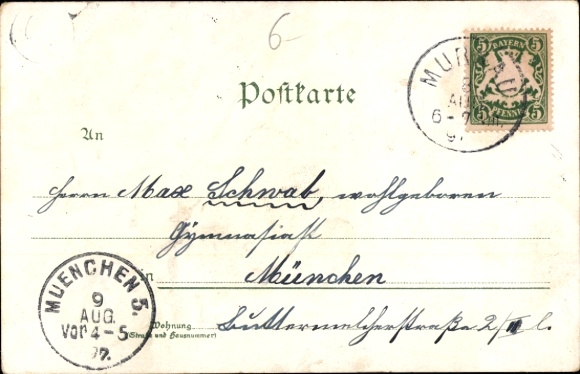 6-
5 BAYERN 5
5 PFENNIG 5
AUG
6-7
97
Postkarte
An
Herrn Max Schwab, wohlgeboren
Gymnasiast
in München
Wohnung Buttermelcherstraße 2/III l.
(Straße und Hausnummer)
MUENCHEN 5.
9
AUG.
Vor 4-5
97.